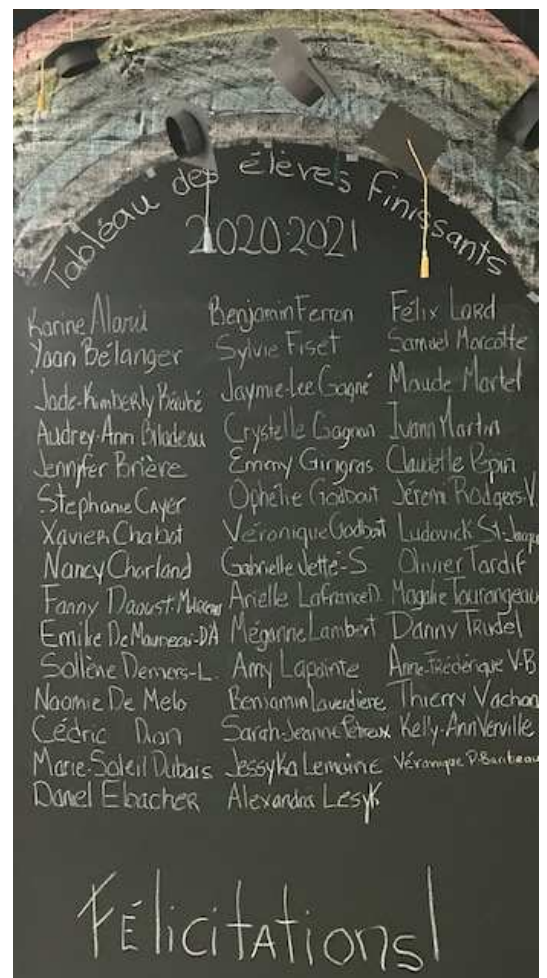 Tableau des élèves finissants
2020-2021
Karine Alarie
Yoan Bélanger
Jade-Kimberly Béaubé
Audrey-Ann Bilodeau
Jennyfer Brière
Stephanie Cayer
Xavier Chabot
Nancy Charland
Fanny Daoust
Emilie De Montreau-DA
Sollène Demers-L.
Naomie De Melo
Cédric Dion
Marie-Soleil Dubois
Daniel Ebacher
Benjamin Ferron
Sylvie Fiset
Jaymie-Lee Gagné
Crystelle Gagnon
Emmy Gingras
Ophélie Godbout
Véronique Godbout
Gabrielle Jetté-S
Arielle Lafrance D.
Méganne Lambert
Amy Lapointe
Benjamin Laverdière
Sarah-Jeanne
Jessyka Lemoine
Alexandra Lesyk
Félix Lord
Samuel Marcotte
Maude Martel
Ivann Martin
Claudelle Pépin
Jérémi Rodgers-V.
Ludovick St-Jacques
Olivier Tardif
Magalie Tourangeau
Danny Trudel
Anne-Frédérique V-B
Thierry Vachon
Kelly-Ann Verville
Véronique P-Baribeau
Félicitations!